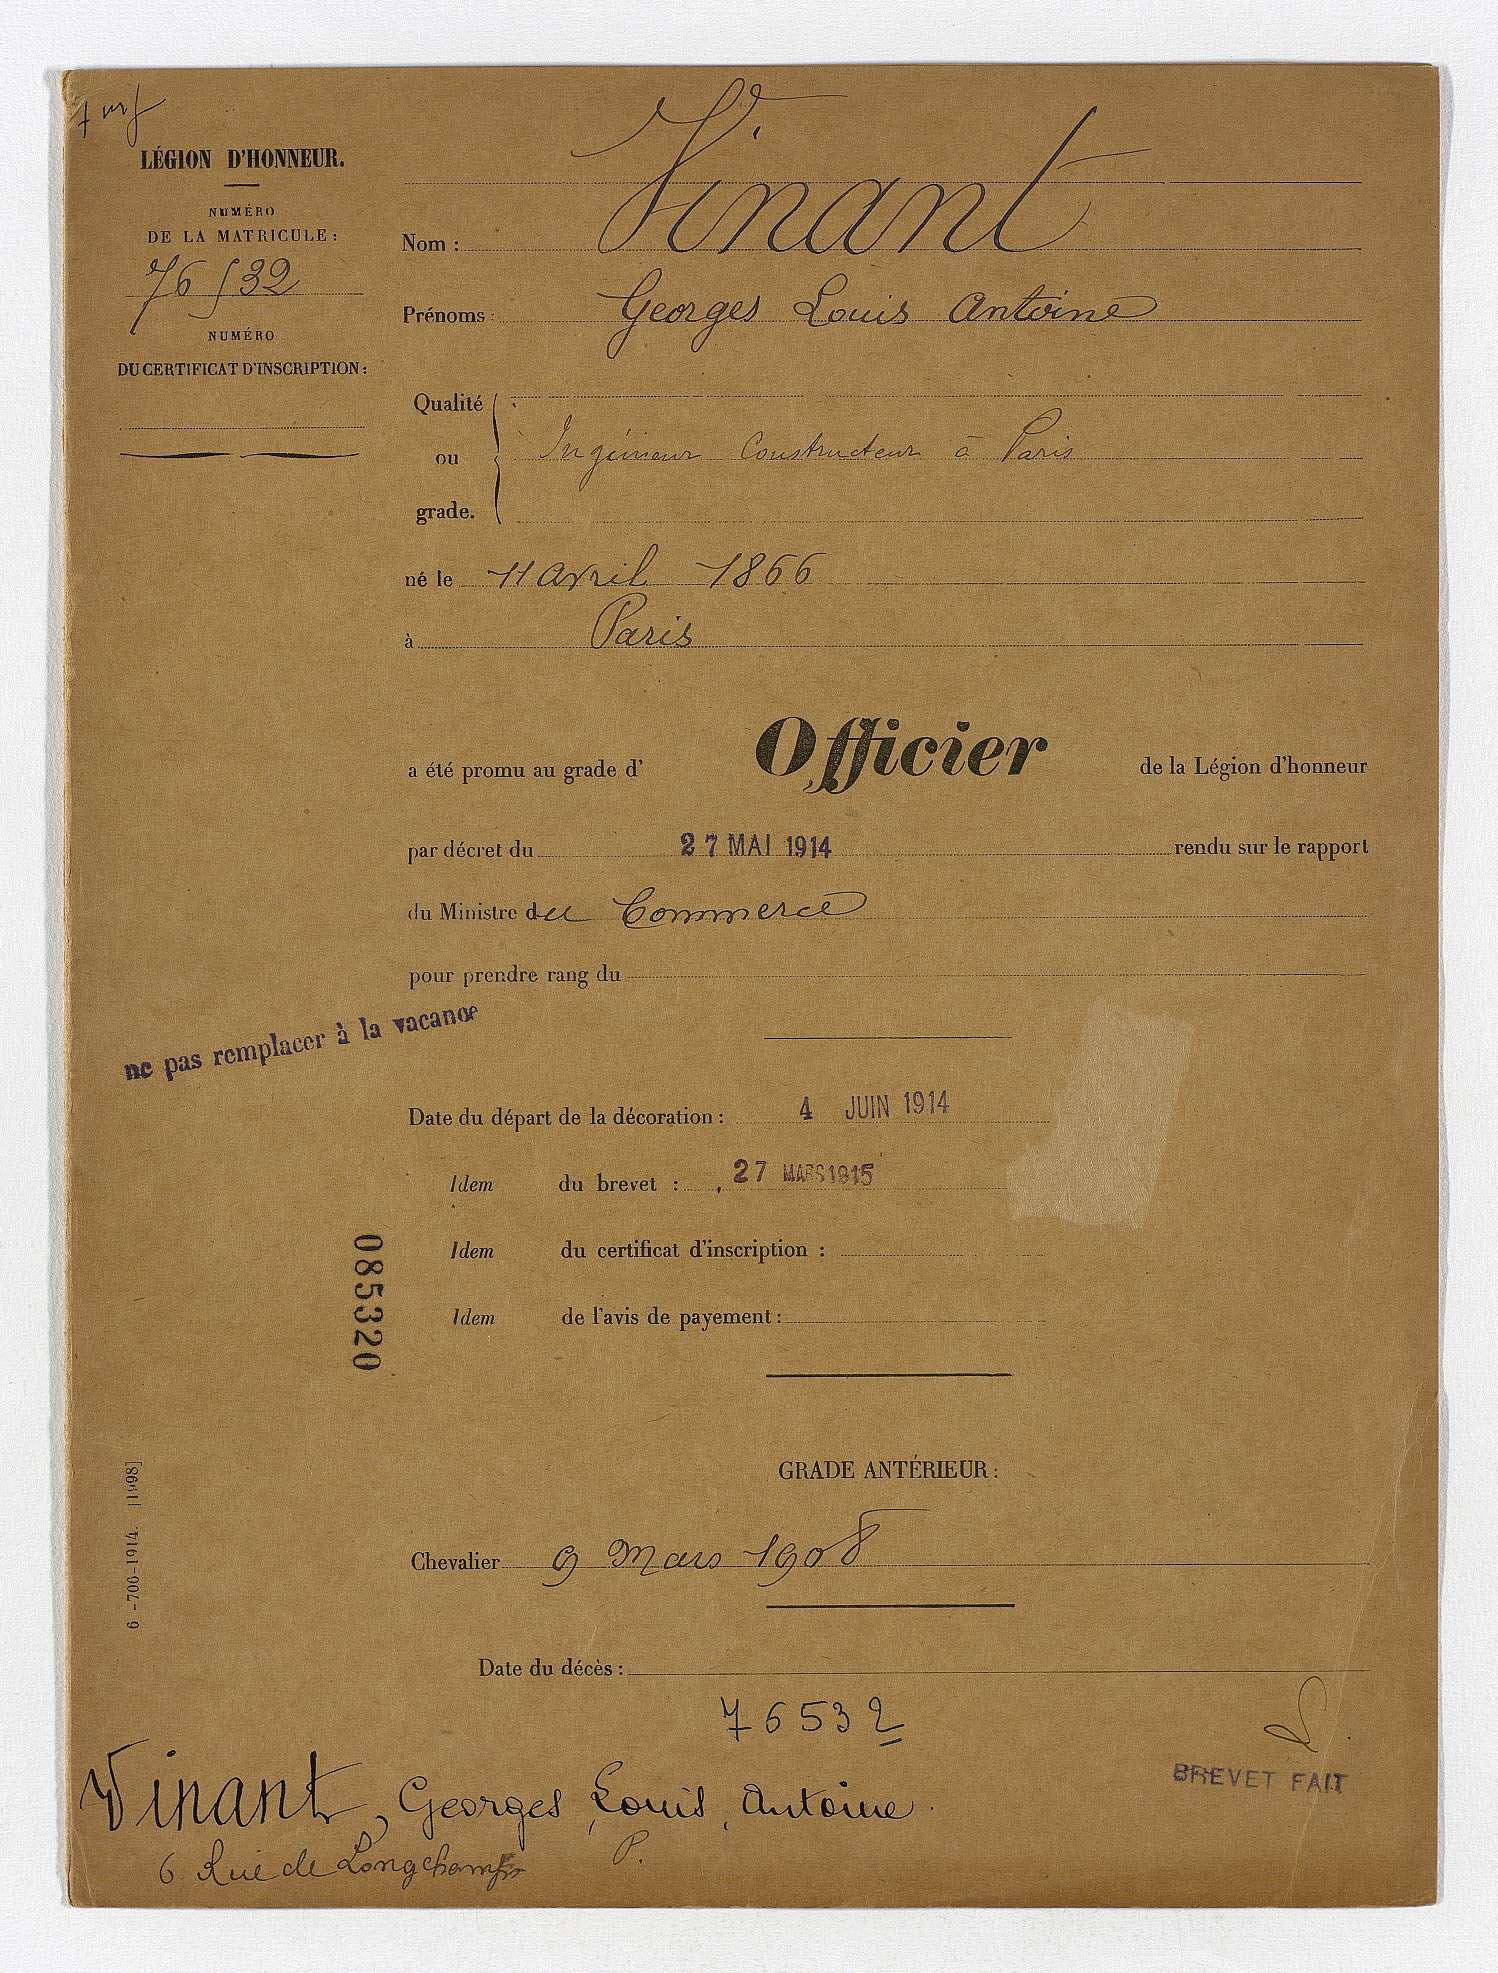 LÉGION D'HONNEUR.
NUMÉRO
DE LA MATRICULE :
76 532
NUMÉRO
DU CERTIFICAT D'INSCRIPTION :
Nom : Vinant
Prénoms : Georges Louis Antoine
Qualité
ou Ingénieur Constructeur à Paris
grade.
né le 11 avril 1866
à Paris
a été promu au grade d' Officier de la Légion d'honneur
par décret du 27 MAI 1914 rendu sur le rapport
du Ministre du Commerce
pour prendre rang du
ne pas remplacer à la vacance
Date du départ de la décoration : 4 JUIN 1914
Idem du brevet : 27 MARS 1915
Idem du certificat d'inscription :
Idem de l'avis de payement :
085320
GRADE ANTÉRIEUR :
Chevalier 9 Mars 1908
6 -706-1914. [1998]
Date du décès :
76532
BREVET FAIT
Vinant, Georges, Louis, Antoine.
6 Rue de Longchamps P.